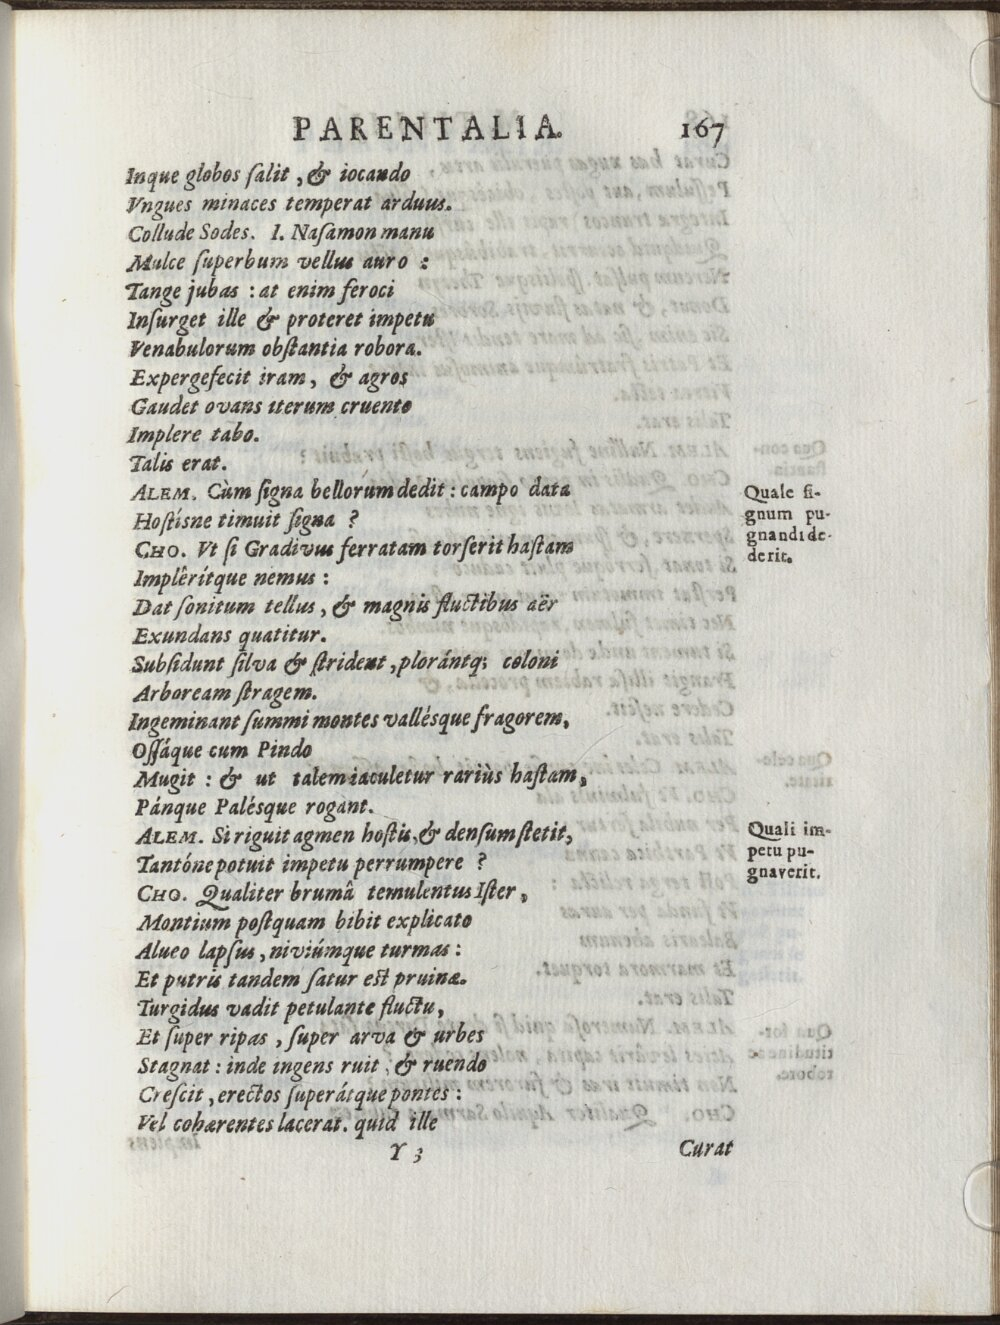 PARENTALIA. 167
Inque globos ſalit, & iocando
Vngues minaces temperat arduus.
Collude Sodes. I. Naſamon manu
Mulce ſuperbum vellus auro :
Tange jubas : at enim feroci
Inſurget ille & proteret impetu
Venabulorum obſtantia robora.
Expergefecit iram, & agros
Gaudet ovans iterum cruento
Implere tabo.
Talis erat.
ALEM. Cùm ſigna bellorum dedit : campo data
Hoſtísne timuit ſigna ?
CHO. Vt ſi Gradivus ferratam torſerit haſtam
Implêrítque nemus :
Dat ſonitum tellus, & magnis fluctibus aër
Exundans quatitur.
Subſidunt ſilva & ſtrident, plorántq; coloni
Arboream ſtragem.
Ingeminant ſummi montes vallésque fragorem,
Oſſáque cum Pindo
Mugit : & ut talem iaculetur rariùs haſtam,
Pánque Palésque rogant.
ALEM. Si riguit agmen hoſtis, & denſum ſtetit,
Tantóne potuit impetu perrumpere ?
CHO. Qualiter brumâ temulentus Iſter,
Montium poſtquam bibit explicato
Alueo lapſus, niviúmque turmas :
Et putris tandem ſatur eſt pruinæ.
Turgidus vadit petulante fluctu,
Et ſuper ripas, ſuper arva & urbes
Stagnat : inde ingens ruit, & ruendo
Creſcit, erectos ſuperátque pontes :
Vel cohærentes lacerat. quid ille
Y 3 Curat
Quale ſi-
gnum pu-
gnandi de-
derit.
Quali im-
petu pu-
gnaverit.